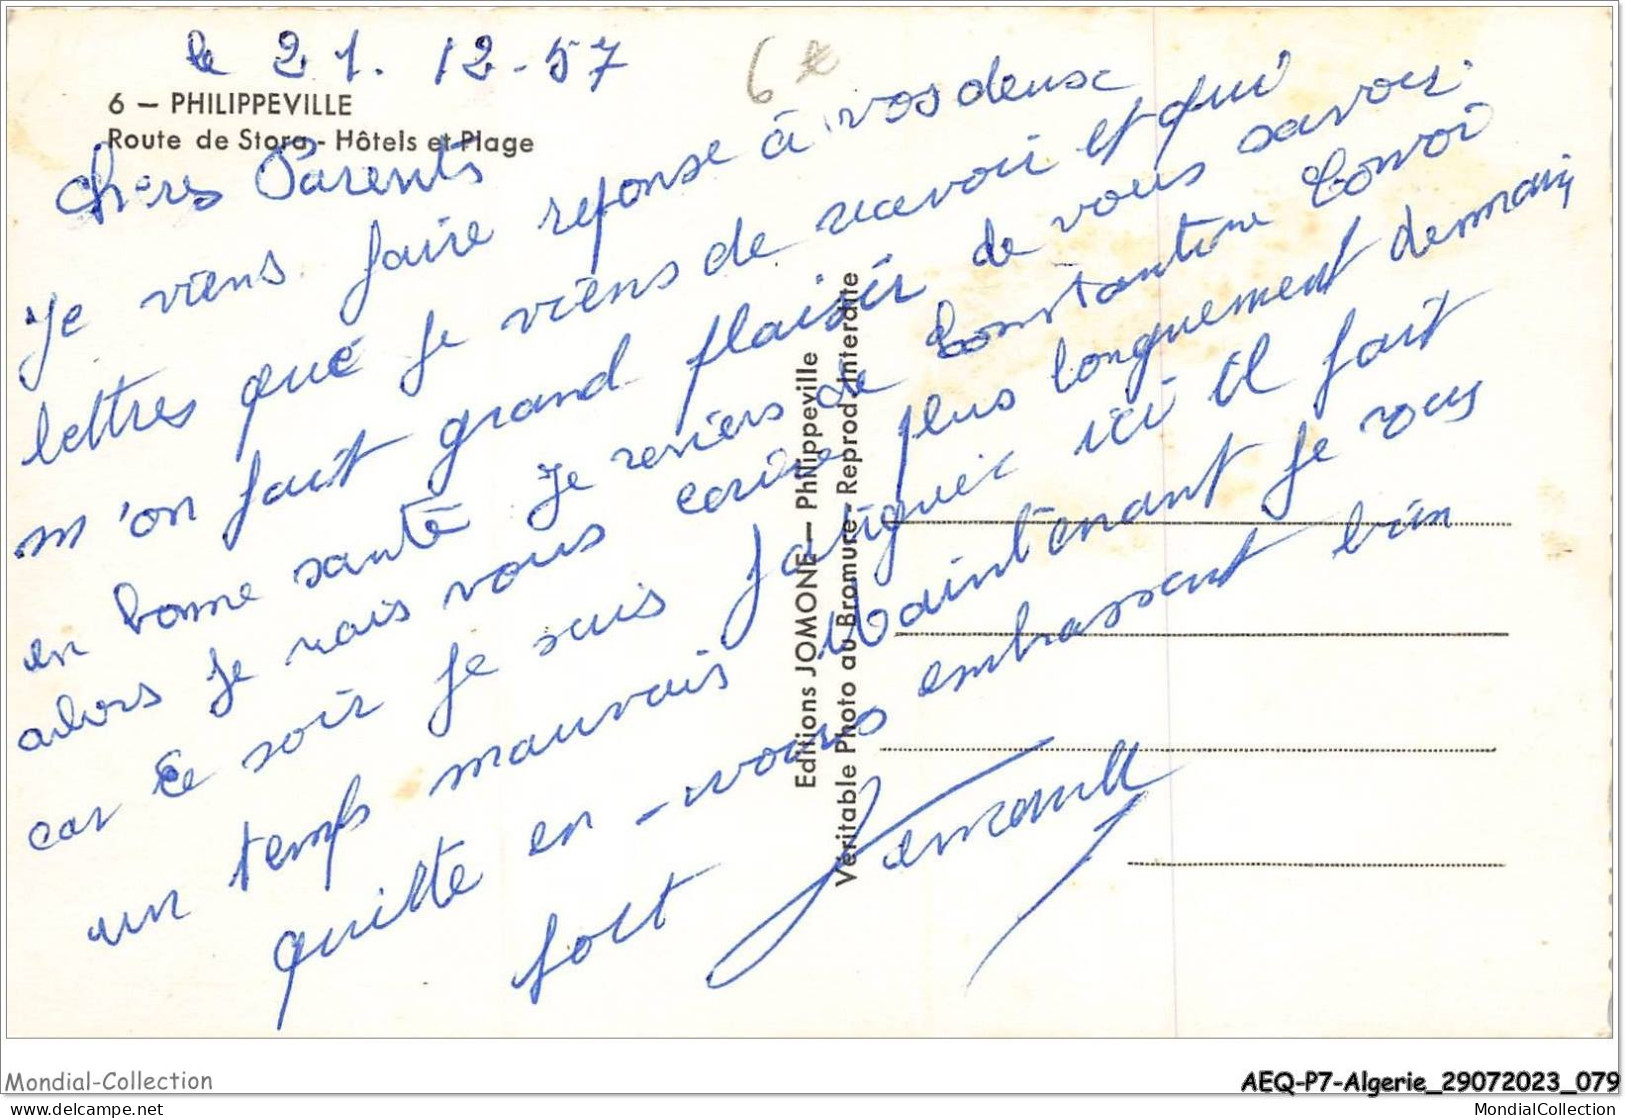 le 21. 12-57
6*
6 — PHILIPPEVILLE
Route de Stora - Hôtels et Plage
Chers Parents
Je viens faire reponse à vos deux
lettres que je viens de recevoir et qui
m'on fait grand plaisir de vous savoir
en bonne santé Je reviers de Constantine Convoi
alors je vais vous ecrire plus longuement demain
car ce soir je suis fatiguer ici il fait
un temps mauvais Maintenant je vous
quitte en -vous embrassant bien
fort
Editions JOMONE — Philippeville
Véritable Photo au Bromure - Reprod. Interdite
Mondial-Collection
AEQ-P7-Algerie_29072023_079
mondial-collection.delcampe.net
MondialCollection